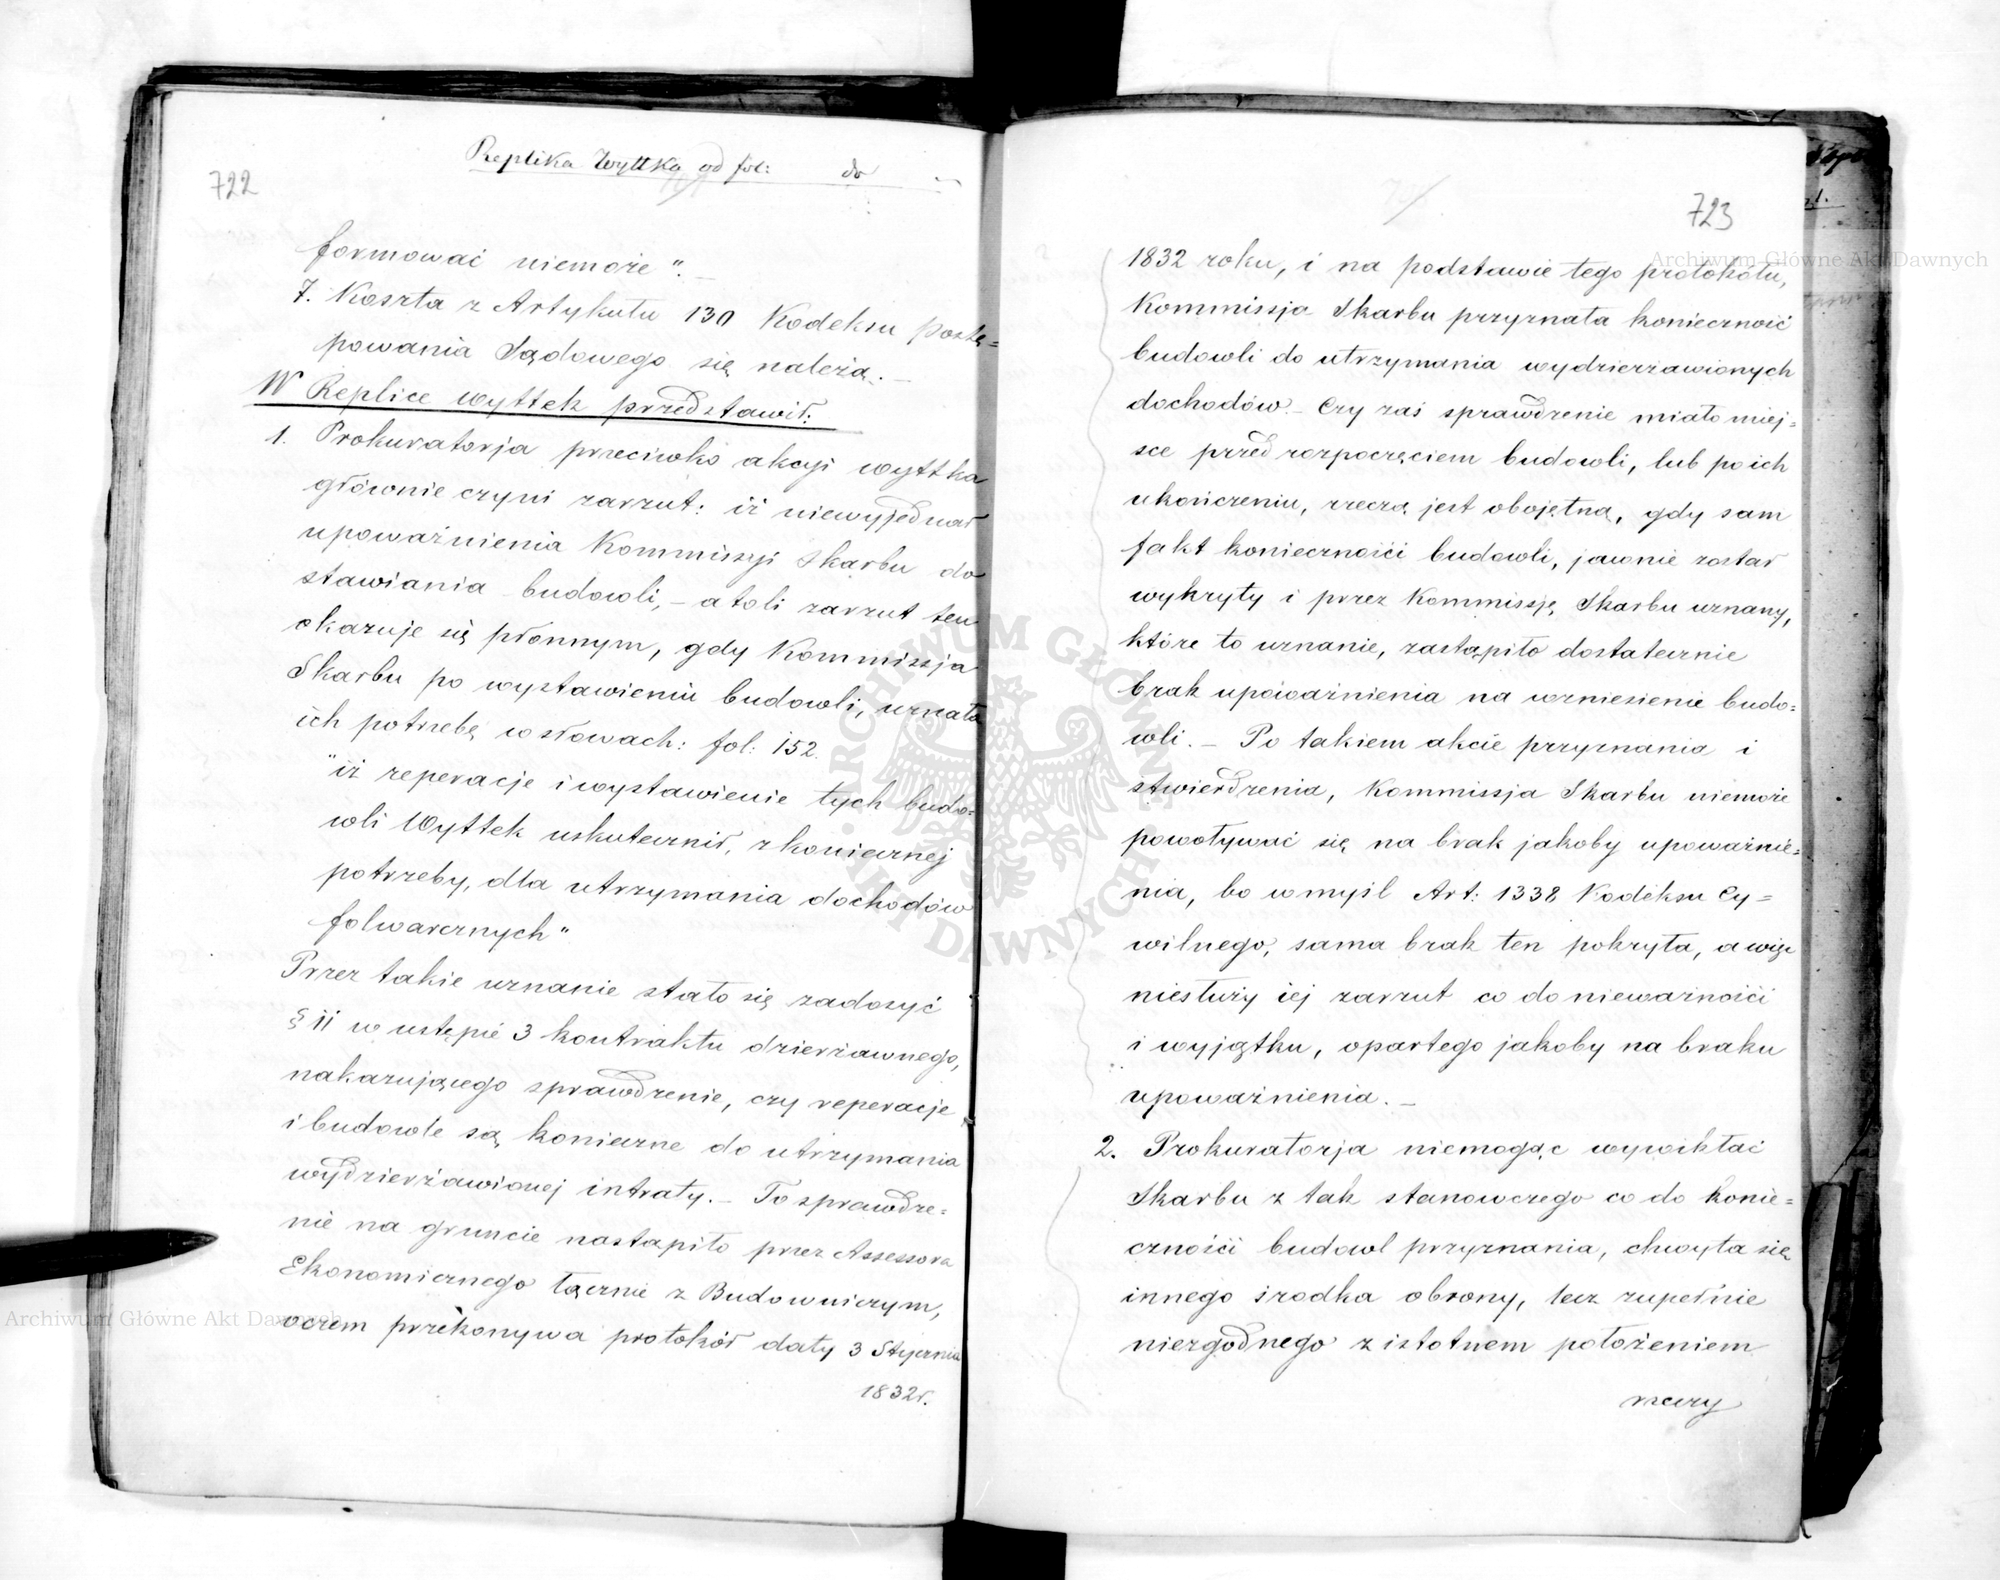 722
Replika Wyttka od fol: do
formować niemoże".
7. Koszta z Artykułu 130 Kodeksu postę=
powania Sądowego się należą. —
W Replice wyttek przedstawił:
1. Prokuratorja przeciwko akcyi wyttka
głównie czyni zarzut: iż niewyjednał
upoważnienia Kommissyi Skarbu do
stawiania budowli, — atoli zarzut ten
okazuje się płonnym, gdy Kommissja
Skarbu po wystawieniu budowli, uznała
ich potrzebę w słowach: fol: 152.
"iż reperacje i wystawienie tych budo=
wli Wyttek uskutecznił, z koniecznej
potrzeby, dla utrzymania dochodów
folwarcznych"
Przez takie uznanie stało się zadosyć
§ 11 w ustępie 3 kontraktu dzierżawnego,
nakazującego sprawdzenie, czy reperacje
i budowle są konieczne do utrzymania
wydzierżawionej intraty. — To sprawdze=
nie na gruncie nastąpiło przez Assessora
Ekonomicznego łącznie z Budowniczym,
oczem przekonywa protokół daty 3 Stycznia
1832r.
723
1832 roku, i na podstawie tego protokółu,
Kommissja Skarbu przyznała konieczność
budowli do utrzymania wydzierżawionych
dochodów. — Czy zaś sprawdzenie miało miej=
sce przed rozpoczęciem budowli, lub po ich
ukończeniu, rzeczą jest obojętną, gdy sam
fakt konieczności budowli, jawnie został
wykryty i przez Kommissję Skarbu uznany,
które to uznanie, zastąpiło dostatecznie
brak upoważnienia na wzniesienie budo=
wli. — Po takiem akcie przyznania i
stwierdzenia, Kommissja Skarbu niemoże
powoływać się na brak jakoby upoważnie=
nia, bo w myśl Art: 1338 Kodeksu Cy=
wilnego, sama brak ten pokryła, a więc
niesłuży iej zarzut co do nieważności
i wyjątku, opartego jakoby na braku
upoważnienia. —
2. Prokuratorja niemogąc wywikłać
Skarbu z tak stanowczego co do konie=
czności budowl przyznania, chwyta się
innego środka obrony, lecz zupełnie
niezgodnego z istotnem położeniem
rzeczy
Archiwum Główne Akt Dawnych
Archiwum Główne Akt Dawnych
ARCHIWUM GŁÓWNE
AKT DAWNYCH